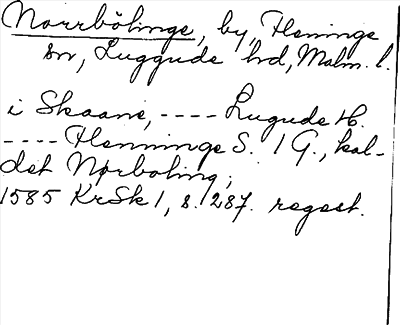 Norrbölinge, by, Fleninge
sn, Luggude hd, Malm. l.
i Skaane, ---- Lugude H.
---- Flenninge S. 1 G., kal-
det Nørboling;
1585 KrSk 1, s. 287. regest.